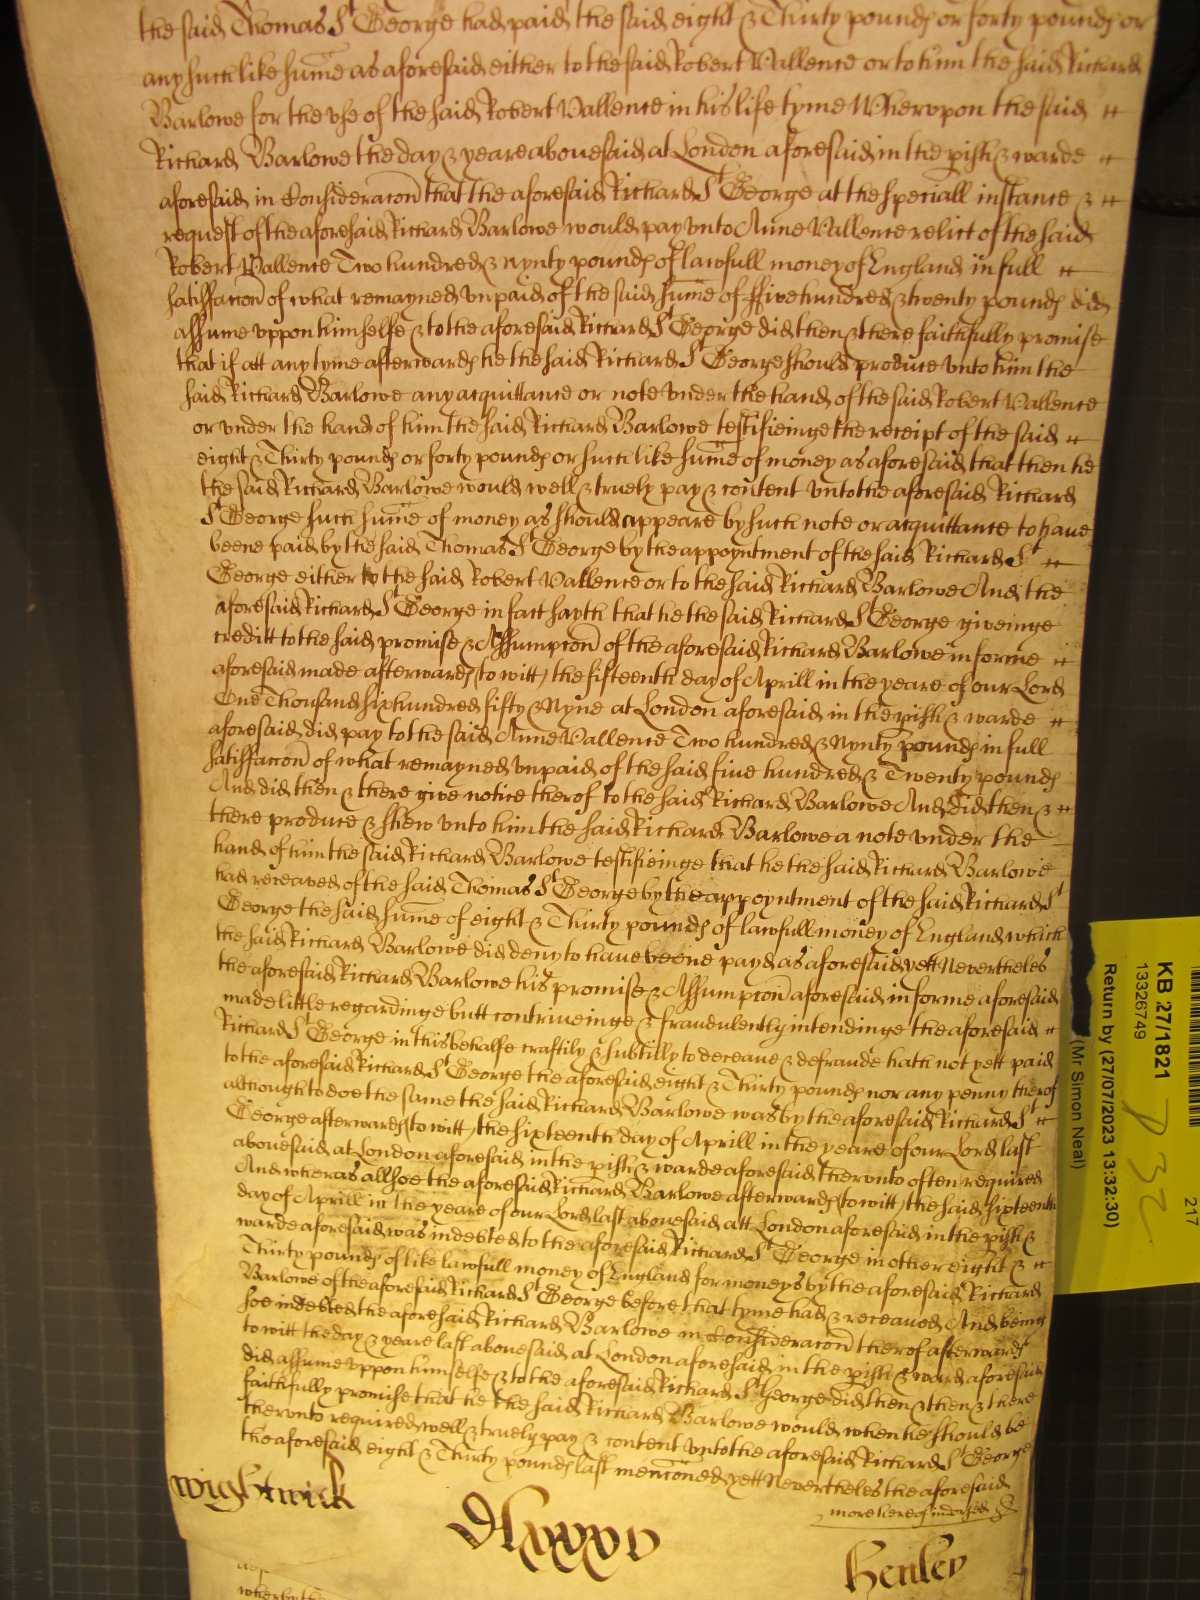 the said Thomas St George had paid the said eight & Thirty pounds or forty pounds or
any such like sume as aforesaid either to the said Robert Vallence or to him the said Richard
Barlowe for the vse of the said Robert Vallence in his life tyme Whervpon the said
Richard Barlowe the day & yeare abouesaid at London aforesaid in the pish & warde
aforesaid in Consideracon that the aforesaid Richard St George at the speciall instance &
request of the aforesaid Richard Barlowe would pay vnto Anne Vallence relict of the said
Robert Vallence Two hundred & nynty pounds of lawfull money of England in full
satisfaccon of what remayned vnpaid of the said sume of ffive hundred & twenty pounds did
assume vppon himselfe & to the aforesaid Richard St George did then & there faithfully promise
that if att any tyme afterwards he the said Richard St George should produce vnto him the
said Richard Barlowe any acquittance or note vnder the hand of the said Robert Vallence
or vnder the hand of him the said Richard Barlowe testifieinge the receipt of the said
eight & Thirty pounds or forty pounds or such like sume of money as aforesaid that then he
the said Richard Barlowe would well & truely pay & content vnto the aforesaid Richard
St George such sume of money as should appeare by such note or acquittance to haue
beene paid by the said Thomas St George by the appoyntment of the said Richard St
George either to the said Robert Vallence or to the said Richard Barlowe And the
aforesaid Richard St George in fact sayth that he the said Richard St George giveinge
creditt to the said promise & Assumpcon of the aforesaid Richard Barlowe in forme
aforesaid made afterwards (to witt) the fifteenth day of Aprill in the yeare of our Lord
One Thousand six hundred fifty & Nyne at London aforesaid in the pish & warde
aforesaid did pay to the said Anne Vallence Two hundred & Nynty pounds in full
satisfaccon of what remayned vnpaid of the said fiue hundred & Twenty pounds
And did then & there give notice therof to the said Richard Barlowe And did then &
there produce & shew vnto him the said Richard Barlowe a note vnder the
hand of him the said Richard Barlowe testifieinge that he the said Richard Barlowe
had receaved of the said Thomas St George by the appoyntment of the said Richard St
George the said sume of eight & Thirty pounds of lawfull money of England which
the said Richard Barlowe did deny to haue beene payd as aforesaid yett Nevertheles
the aforesaid Richard Barlowe his promise & Assumpcon aforesaid in forme aforesaid
made little regardinge butt contriueinge & fraudulently intendinge the aforesaid
Richard St George in this behalfe craftily & subtilly to deceaue & defraude hath not yett paid
to the aforesaid Richard St George the aforesaid eight & Thirty pounds nor any penny therof
although to doe the same the said Richard Barlowe was by the aforesaid Richard St
George afterwards (to witt) the sixteenth day of Aprill in the yeare of our Lord last
abouesaid at London aforesaid in the pish & warde aforesaid thervnto often required
And wheras allsoe the aforesaid Richard Barlowe afterwards (to witt) the said sixteenth
day of Aprill in the yeare of our Lord last abouesaid att London aforesaid in the pish &
warde aforesaid was indebted to the aforesaid Richard St George in other eight &
Thirty pounds of like lawfull money of England for moneys by the aforesaid Richard
Barlowe of the aforesaid Richard St George before that tyme had & receaued And being
soe indebted the aforesaid Richard Barlowe in Consideracon therof afterwards
to witt the day & yeare last abouesaid at London aforesaid in the pish & ward aforesaid
did assume vppon himselfe & to the aforesaid Richard St George did then & then & there
faithfully promise that he the said Richard Barlowe would when he should be
thervnto required well & truely pay & content vnto the aforesaid Richard St George
the aforesaid eight & Thirty pounds last mencioned yett Nevertheles the aforesaid
more hereof indorsed
Wightwick
Henley
KB 27/1821
13326749
Return by (27/07/2023 13:32:30)
(Mr Simon Neal)
217